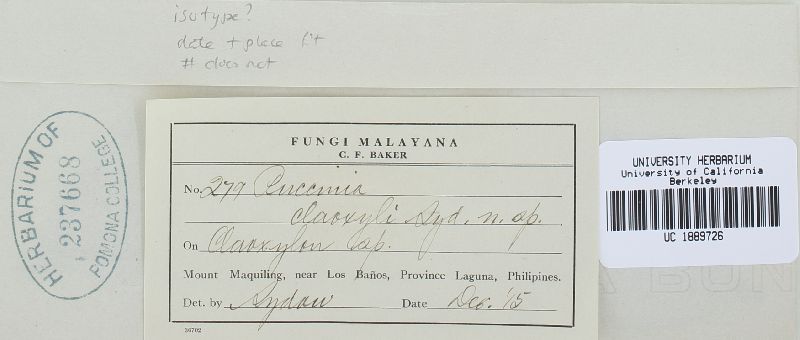 isotype?
date + place fit
# does not
HERBARIUM OF
237668
POMONA COLLEGE
FUNGI MALAYANA
C. F. BAKER
No. 279 Puccinia
claoxyli Syd. n. sp.
On Claoxylon sp.
Mount Maquiling, near Los Baños, Province Laguna, Philipines.
Det. by Sydow Date Dec. '15
36702
UNIVERSITY HERBARIUM
University of California
Berkeley
UC 1889726